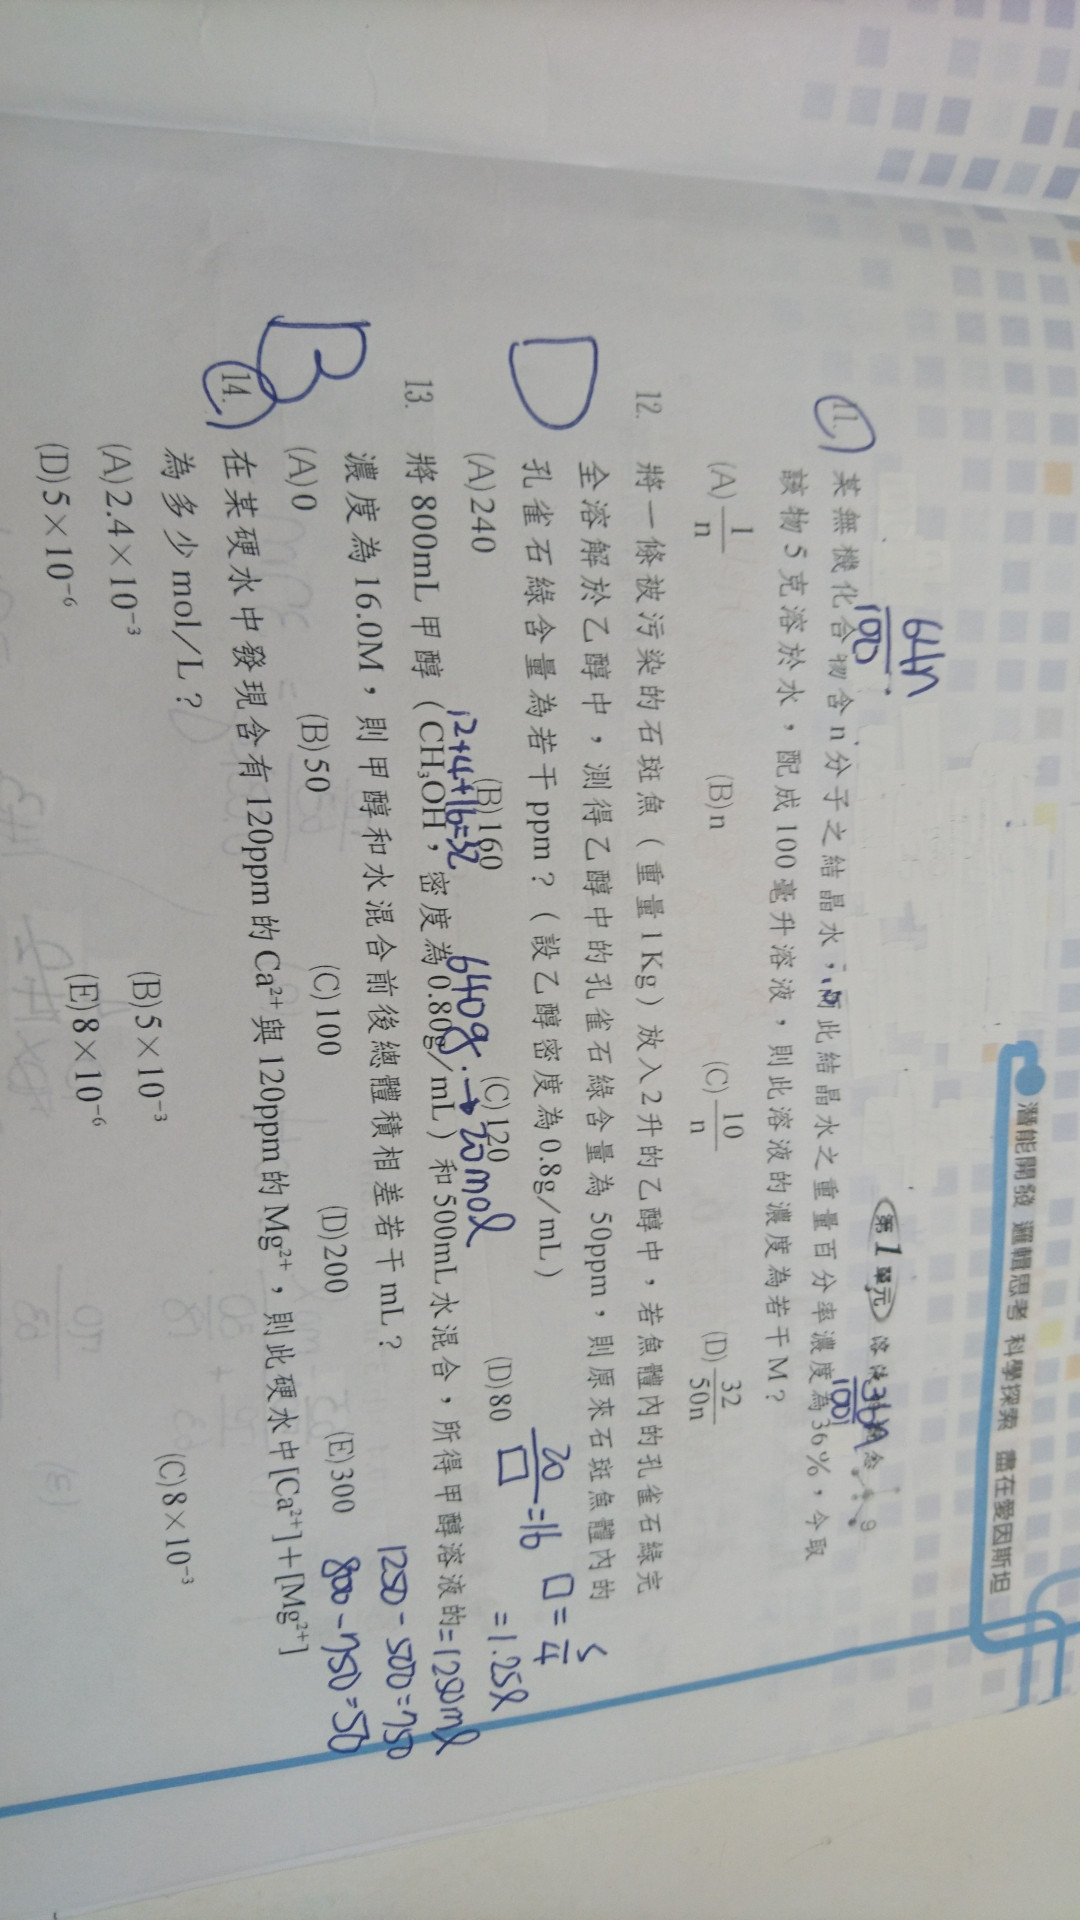 潛能開發 邏輯思考 科學探索 盡在愛因斯坦
第1單元 溶液
64n
100
36n
100
11. 某無機化合物含n分子之結晶水,而此結晶水之重量百分率濃度為36%,今取
該物5克溶於水,配成100毫升溶液,則此溶液的濃度為若干M?
(A) 1/n (B) n (C) 10/n (D) 32/50n
12. 將一條被污染的石斑魚(重量1Kg)放入2升的乙醇中,若魚體內的孔雀石綠完
全溶解於乙醇中,測得乙醇中的孔雀石綠含量為50ppm,則原來石斑魚體內的
孔雀石綠含量為若干ppm?(設乙醇密度為0.8g/mL)
D
(A)240 (B)160 (C)120 (D)80
20/□=16 □=5/4
=1.25l
12+4+16=32 640g→20mol
13. 將800mL甲醇(CH₃OH,密度為0.80g/mL)和500mL水混合,所得甲醇溶液的
=1250ml
濃度為16.0M,則甲醇和水混合前後總體積相差若干mL?
1250-500=750
B
(A)0 (B)50 (C)100 (D)200 (E)300
800-750=50
14. 在某硬水中發現含有120ppm的Ca²⁺與120ppm的Mg²⁺,則此硬水中[Ca²⁺]+[Mg²⁺]
為多少mol/L?
(A)2.4×10⁻³ (B)5×10⁻³ (C)8×10⁻³
(D)5×10⁻⁶ (E)8×10⁻⁶